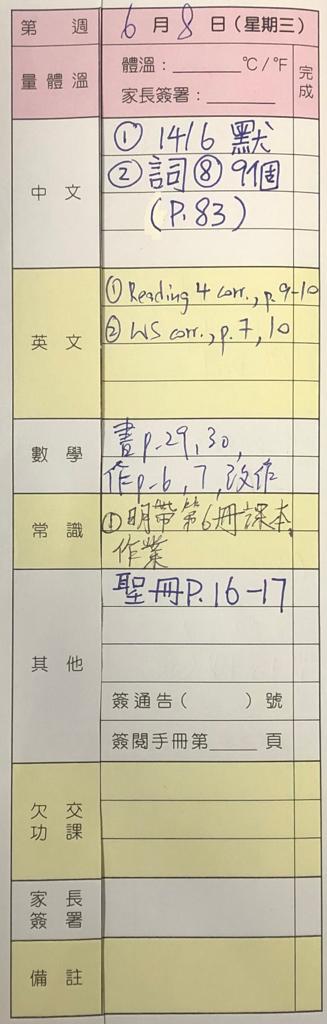 第 週 6 月 8 日 (星期三)
量體溫 體溫: ℃/℉ 完成
家長簽署:
中文 ① 14/6 默
② 詞⑧ 9個
(P.83)
英文 ① Reading 4 corr., p.9-10
② WS corr., p.7, 10
數學 書p.29, 30,
作p.6, 7, 改作
常識 ① 明帶第6冊課本,
作業
其他 聖冊P.16-17
簽通告( )號
簽閱手冊第 頁
欠交功課
家長簽署
備註